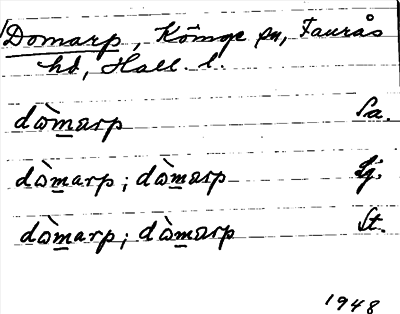 Domarp, Köinge sn, Faurås
hd, Hall. l.
dò̀m̲arp Sa.
dò̀m̲arp; dò̀m̲arp Sj.
dò̀m̲arp; dò̀m̲arp St.
1948